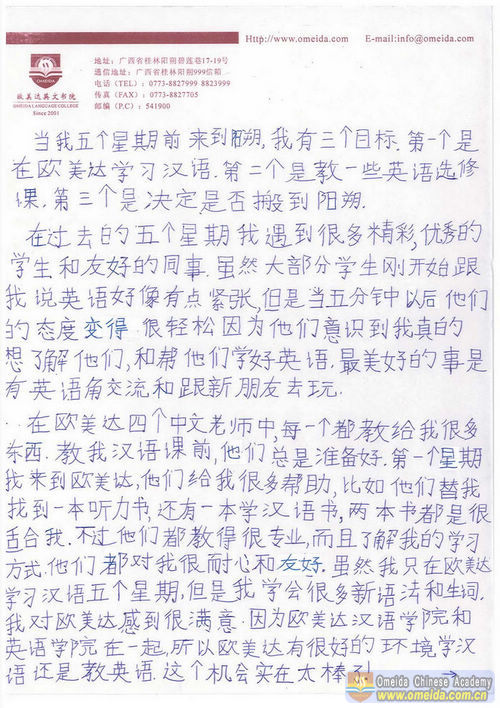 Http://www.omeida.com E-mail:info@omeida.com
地址: 广西省桂林阳朔碧莲巷17-19号
通信地址: 广西省桂林阳朔999信箱
电话 (TEL) : 0773-8827999 8823999
传真 (FAX) : 0773-8827705
邮编 (P.C) : 541900
欧美达英文书院
OMEIDA LANGUAGE COLLEGE
Since 2001
当我五个星期前来到阳朔,我有三个目标.第一个是
在欧美达学习汉语.第二个是教一些英语选修
课.第三个是决定是否搬到阳朔.
在过去的五个星期我遇到很多精彩,优秀的
学生和友好的同事.虽然大部分学生刚开始跟
我说英语好像有点紧张,但是当五分钟以后他们
的态度变得 很轻松因为他们意识到我真的
想了解他们,和帮他们学好英语.最美好的事是
有英语角交流和跟新朋友去玩.
在欧美达四个中文老师中,每一个都教给我很多
东西.教我汉语课前,他们总是准备好.第一个星期
我来到欧美达,他们给我很多帮助,比如他们替我
找到一本听力书,还有一本学汉语书,两本书都是很
适合我.不过他们都教得很专业,而且了解我的学习
方式.他们都对我很耐心和友好.虽然我只在欧美达
学习汉语五个星期,但是我学会很多新语法和生词.
我对欧美达感到很满意.因为欧美达汉语学院和
英语学院在一起,所以欧美达有很好的环境学汉
语还是教英语.这个机会实在太棒了! →
Omeida Chinese Academy
www.omeida.com.cn